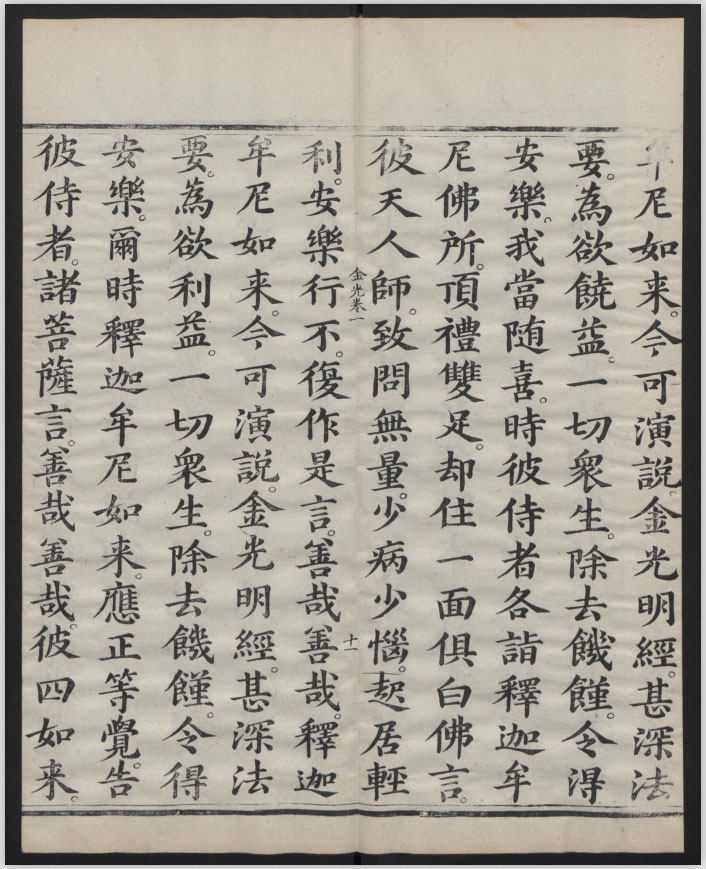 牟尼如来。今可演説。金光明經。甚深法
要。為欲饒益。一切衆生。除去饑饉。令得
安樂。我當随喜。時彼侍者各詣釋迦牟
尼佛所。頂禮雙足。却住一面俱白佛言。
彼天人師。致問無量。少病少惱。起居輕
金光卷一
十一
利。安樂行不。復作是言。善哉善哉。釋迦
牟尼如来。今可演説。金光明經。甚深法
要。為欲利益。一切衆生。除去饑饉。令得
安樂。爾時釋迦牟尼如来。應正等覺。告
彼侍者。諸菩薩言。善哉善哉。彼四如来。